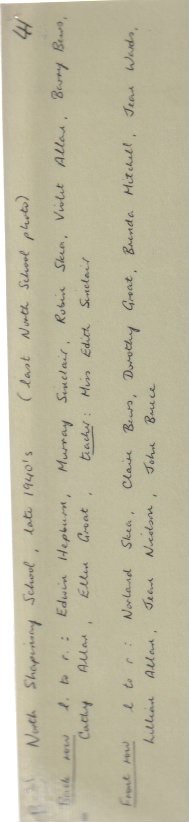 44
North Shapinsay School, late 1940's (last North School photo)
Back row l. to r. : Edwin Hepburn, Murray Sinclair, Robin Skea, Violet Allan, Barry Bews,
Cathy Allan, Ellen Groat, teacher: Miss Edith Sinclair
Front row l to r : Norland Skea, Claire Bews, Dorothy Groat, Brenda Mitchell, Jean Wards,
Lillian Allan, Jean Nicolson, John Bruce